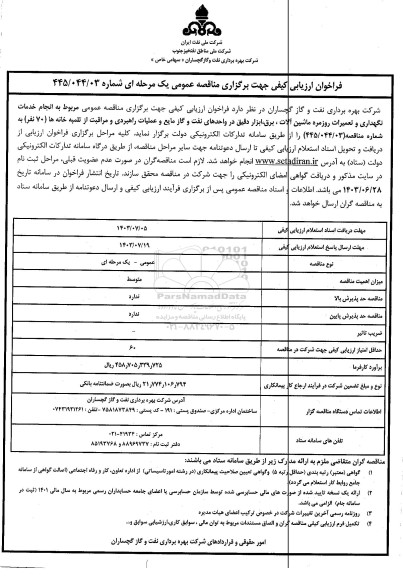 شرکت ملی نفت ایران
شرکت ملی مناطق نفتخیز جنوب
شرکت بهره برداری نفت و گاز گچساران « سهامی خاص »
فراخوان ارزیابی کیفی جهت برگزاری مناقصه عمومی یک مرحله ای شماره ۴۴۵/۰۴۴/۰۳
شرکت بهره برداری نفت و گاز گچساران در نظر دارد فراخوان ارزیابی کیفی جهت برگزاری مناقصه عمومی مربوط به انجام خدمات
نگهداری و تعمیرات روزمره ماشین آلات ، برق،ابزار دقیق در واحدهای نفت و گاز مایع و عملیات راهبردی و مراقبت از تلمبه خانه ها (۷۰ نفر) به
شماره مناقصه(۴۴۵/۰۴۴/۰۳) را از طریق سامانه تدارکات الکترونیکی دولت برگزار نماید. کلیه مراحل برگزاری فراخوان ارزیابی از
دریافت و تحویل اسناد استعلام ارزیابی کیفی تا ارسال دعوتنامه جهت سایر مراحل مناقصه، از طریق درگاه سامانه تدارکات الکترونیکی
دولت (ستاد) به آدرس www.setadiran.ir انجام خواهد شد. لازم است مناقصه‌گران در صورت عدم عضویت قبلی، مراحل ثبت نام
در سایت مذکور و دریافت گواهی امضای الکترونیکی را جهت شرکت در مناقصه محقق سازند. تاریخ انتشار فراخوان در سامانه تاریخ
۱۴۰۳/۰۶/۲۸ می باشد. اطلاعات و اسناد مناقصه عمومی پس از برگزاری فرآیند ارزیابی کیفی و ارسال دعوتنامه از طریق سامانه ستاد
به مناقصه گران ارسال خواهد شد.
مهلت دریافت اسناد استعلام ارزیابی کیفی ۱۴۰۳/۰۷/۰۵
مهلت ارسال پاسخ استعلام ارزیابی کیفی ۱۴۰۳/۰۷/۱۹
نوع مناقصه عمومی - یک مرحله ای
میزان اهمیت مناقصه متوسط
مناقصه حد پذیرش بالا ندارد
مناقصه حد پذیرش پایین ندارد
ضریب تاثیر -
حداقل امتیاز ارزیابی کیفی جهت شرکت در مناقصه ۶۰
برآورد کارفرما ۴۵۸,۷۰۵,۳۳۹,۷۲۵ ریال
نوع و مبلغ تضمین شرکت در فرآیند ارجاع کار پیمانکاری ۲۱,۷۷۴,۱۰۶,۷۹۴ ریال بصورت ضمانتنامه بانکی
اطلاعات تماس دستگاه مناقصه گزار آدرس شرکت بهره برداری نفت و گاز گچساران
ساختمان اداره مرکزی- صندوق پستی : ۱۹۱ - کد پستی : ۷۵۸۱۸۷۳۸۴۹ - تلفن : ۰۷۴۳۱۹۲۱۲۶۱
تلفن های سامانه ستاد مرکز تماس : ۴۱۹۳۴-۰۲۱
دفتر ثبت نام : ۸۸۹۶۹۷۳۷ و ۸۵۱۹۳۷۶۸
مناقصه گران متقاضی ملزم به ارائه مدارک زیر از طریق سامانه ستاد می باشند:
۱) گواهی (معتبر) رتبه بندی (حداقل رتبه ۵) وگواهی تعیین صلاحیت پیمانکاری (در رشته امور تاسیساتی) از اداره تعاون، کار و رفاه اجتماعی (اصالت گواهی از سامانه
جامع روابط کار استعلام می گردد)
۲) ارائه یک نسخه تایید شده از صورت های مالی حسابرسی شده توسط سازمان حسابرسی یا اعضای جامعه حسابداران رسمی مربوط به سال مالی ۱۴۰۱ (ثبت در
سامانه جام) الزامی می باشد.
۳) روزنامه رسمی آخرین تاییرات شرکت در خصوص ترکیب اعضای هیات مدیره
۴) تکمیل فرم ارزیابی کیفی مناقصه گران و الصاق مستندات مربوط به توان مالی ، سوابق کاری،ارزشیابی سوابق و...
امور حقوقی و قراردادهای شرکت بهره برداری نفت و گاز گچساران